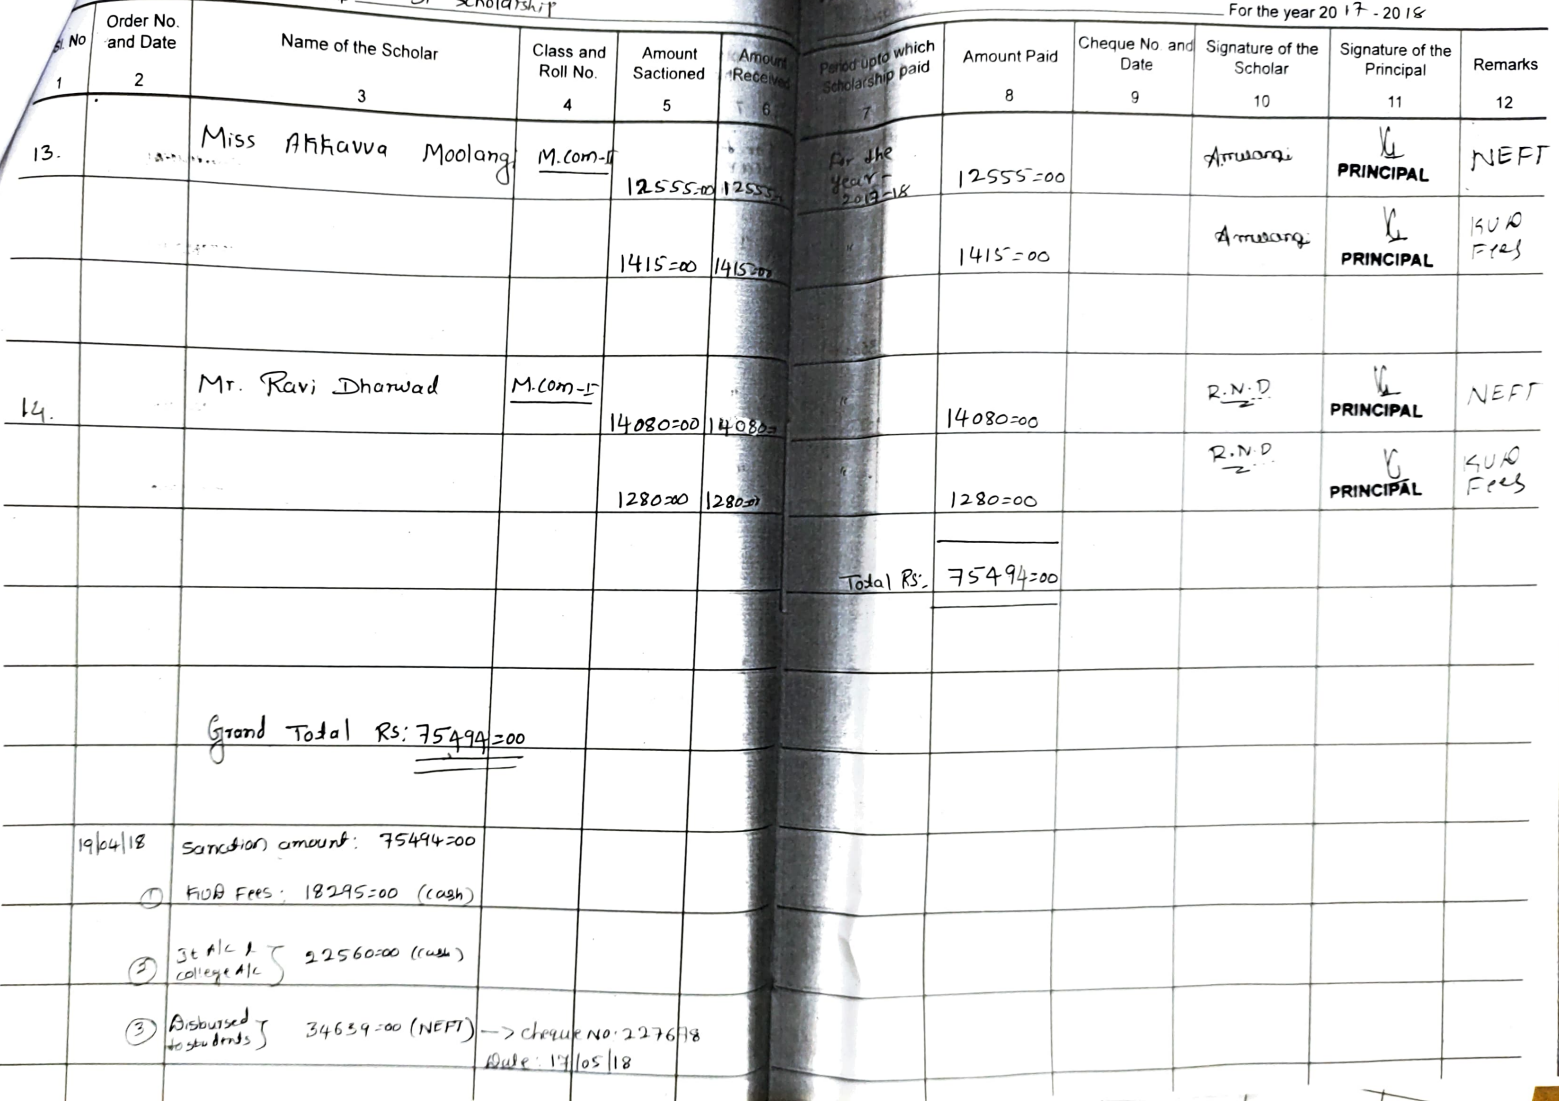 Scholarship
For the year 2017-2018
Sl. No
Order No. and Date
Name of the Scholar
Class and Roll No.
Amount Sactioned
Amount Received
Period upto which Scholarship paid
Amount Paid
Cheque No. and Date
Signature of the Scholar
Signature of the Principal
Remarks
1 2 3 4 5 6 7 8 9 10 11 12
13. Miss Akkavva Moolangi M.Com-II 12555=00 12555= For the year- 2017-18 12555=00 PRINCIPAL NEFT
1415=00 1415=00 " 1415=00 PRINCIPAL KUD Fees
14. Mr. Ravi Dharwad M.Com-I 14080=00 14080= " 14080=00 R.N.D PRINCIPAL NEFT
1280=00 1280=00 " 1280=00 R.N.D PRINCIPAL KUD Fees
Total Rs:- 75494=00
Grand Total Rs: 75494=00
19/04/18 Sanction amount: 75494=00
① KUD Fees: 18295=00 (Cash)
Jt A/c & college A/c } 22560=00 (Cash)
③ Disbursed to students } 34639=00 (NEFT) -> Cheque No. 227678
Date: 17/05/18